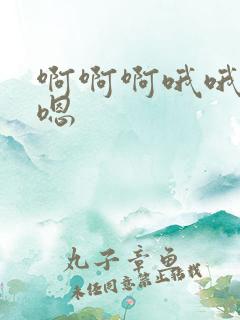 啊啊啊哦哦
嗯
丸子章鱼
未经同意禁止转载